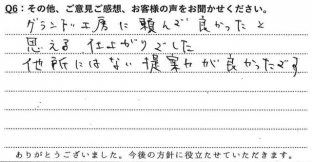 Q6：その他、ご意見ご感想、お客様の声をお聞かせください。
グランド工房に頼んで良かったと
思える仕上がりでした
他所にはない提案力が良かったです
ありがとうございました。今後の方針に役立たせていただきます。